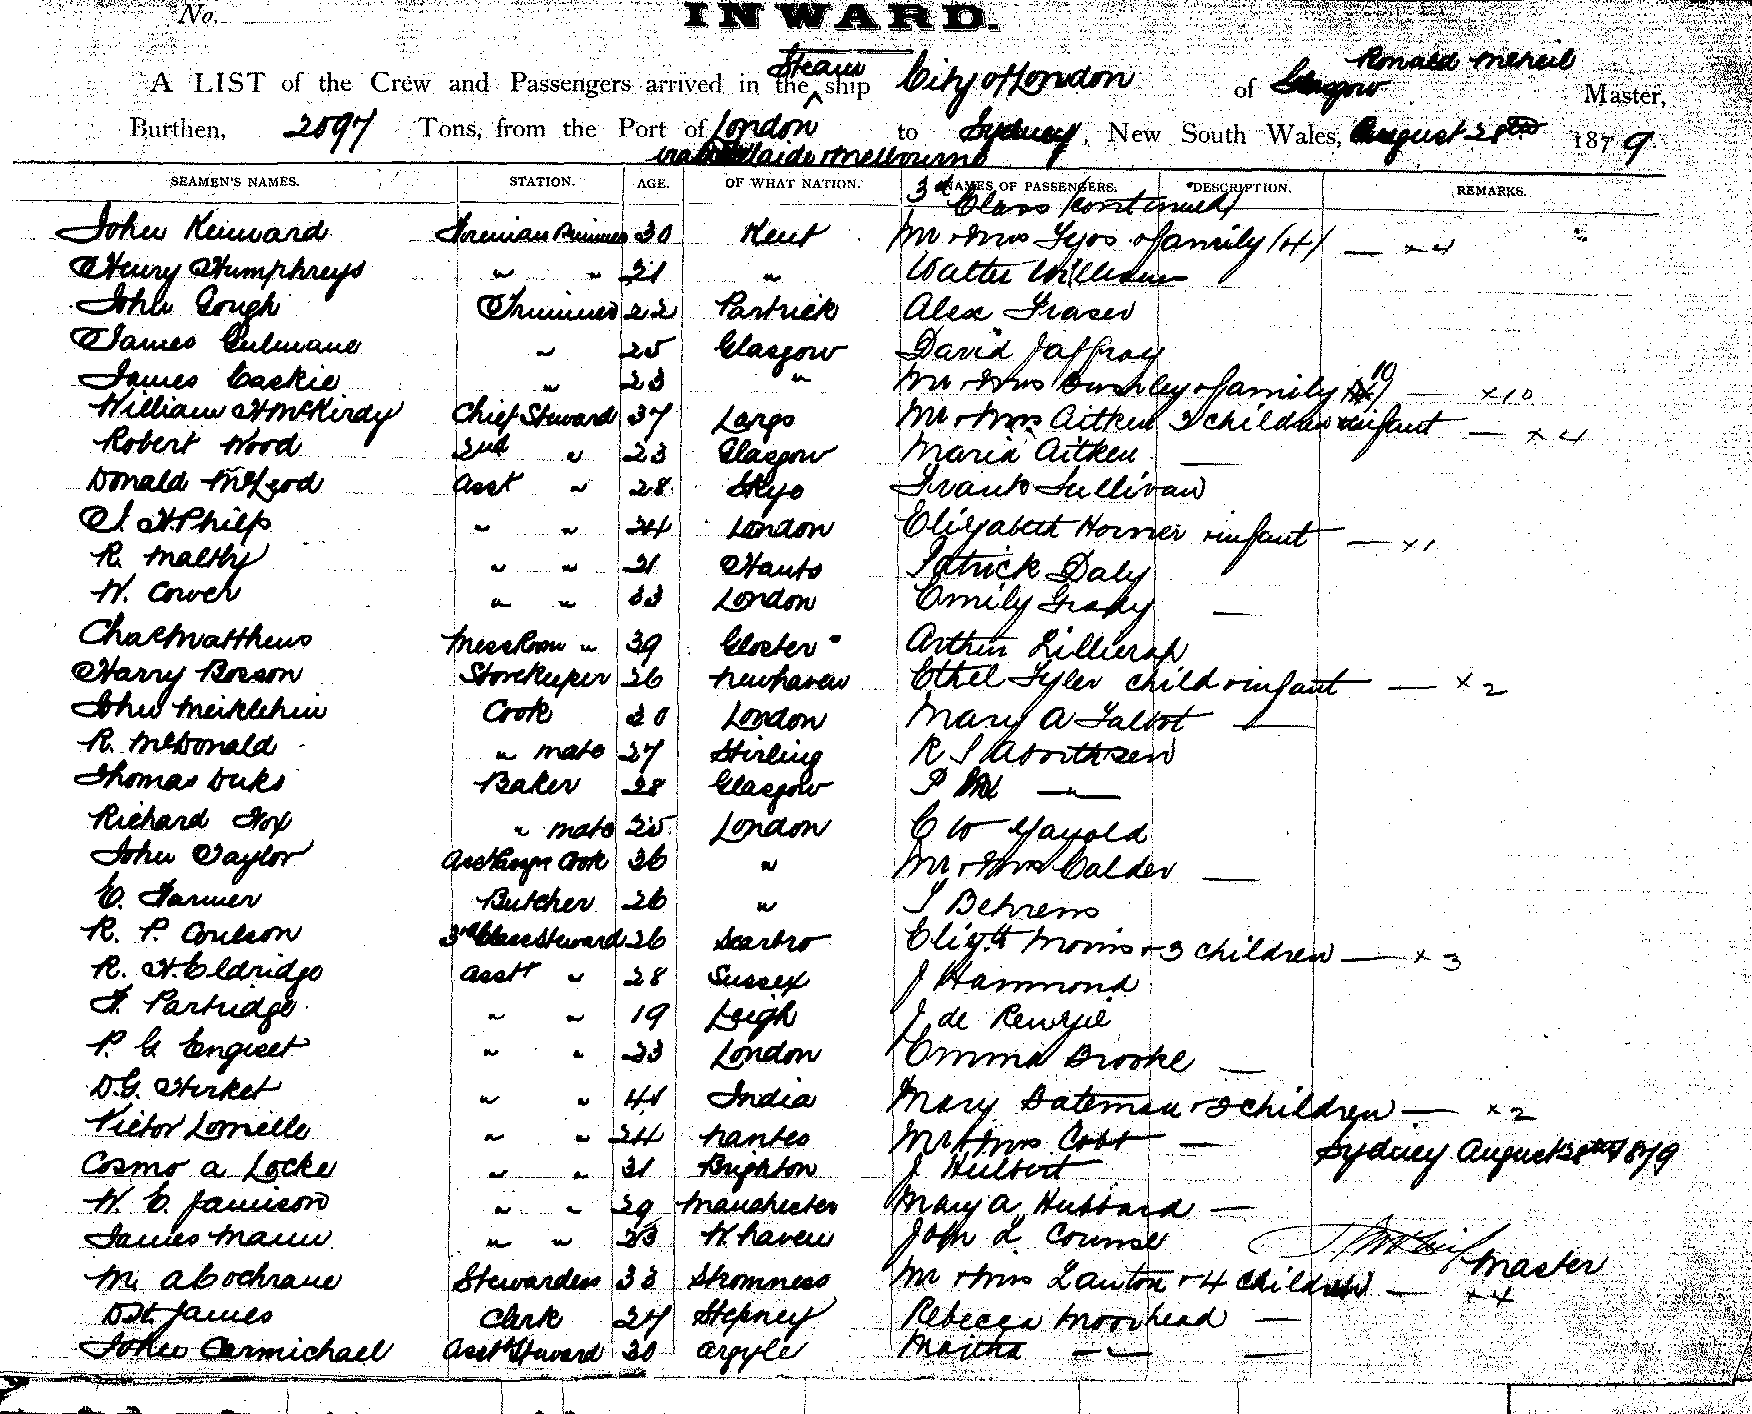 No.
INWARD.
Steam
Ronald McNeil
A LIST of the Crew and Passengers arrived in the ship City of London of Glasgow Master,
Burthen, 2097 Tons, from the Port of London to Sydney, New South Wales, August 28th 1879.
via Adelaide & Melbourne
SEAMEN'S NAMES. STATION. AGE. OF WHAT NATION. NAMES OF PASSENGERS. DESCRIPTION. REMARKS.
3rd Class (continued)
John Kenward 30 Kent Mr & Mrs & family (4) — x 4
Henry Humphreys " " 21 " Walter William
John Gough Trimmer 22 Partrick Alex Fraser
James " 25 Glasgow David Jaffray
James Caskie " 23 " Mr & Mrs & family 10 — x 10
William H McKirdy Chief Steward 37 Largs Mr & Mrs Aitken 3 children & infant — x 4
Robert Wood 2nd " 23 Glasgow Maria Aitken —
Donald McLeod Asst " 28 Skye Frank Sullivan
H. Philp " " 24 London Elizabeth Horner & infant — x 1
R. Maltby " " 21 Hants Patrick Daly
W. Cover " " 33 London Emily Grady —
Chas Matthews Mess Room " 39 Gloster Arthur Lillicrap
Harry Bosson Storekeeper 26 Newhaven Ethel Tyler child & infant — x 2
John Meiklehim Cook London Mary A Talbot —
R. McDonald " mate 27 Stirling R S
Thomas Duks Baker 28 Glasgow P — " —
Richard Fox " mate 25 London C W
John Taylor Cook 36 " Mr & Mrs Calder —
E. Farmer Butcher 26 " Behrens
R. P. Coulson 3rd Class Steward 26 Scarbro Elizth Morris & 3 children — x 3
R. H. Eldridge Asst " 28 Sussex J Hammond
F. Partridge " " 19 Leigh J de
P. G. " " 23 London Emma Brooke —
D.G. " " 41 India Mary Bateman & 2 children — x 2
Victor " " 24 Nantes Mr & Mrs Cobb — Sydney August 28th 1879
Cosmo A Locke " " 31 Brighton J Hulbert
W. E. Jamieson " " 29 Manchester Mary A Hubbard —
James Mann " " 23 W'haven John L
M. A Cochrane Stewardess 33 Stromness Mr & Mrs & 4 children — x 4 Master
D. St. James Clerk 27 Stepney Rebecca Moorhead —
John Carmichael Asst Steward 30 Argyle Martha — " — —